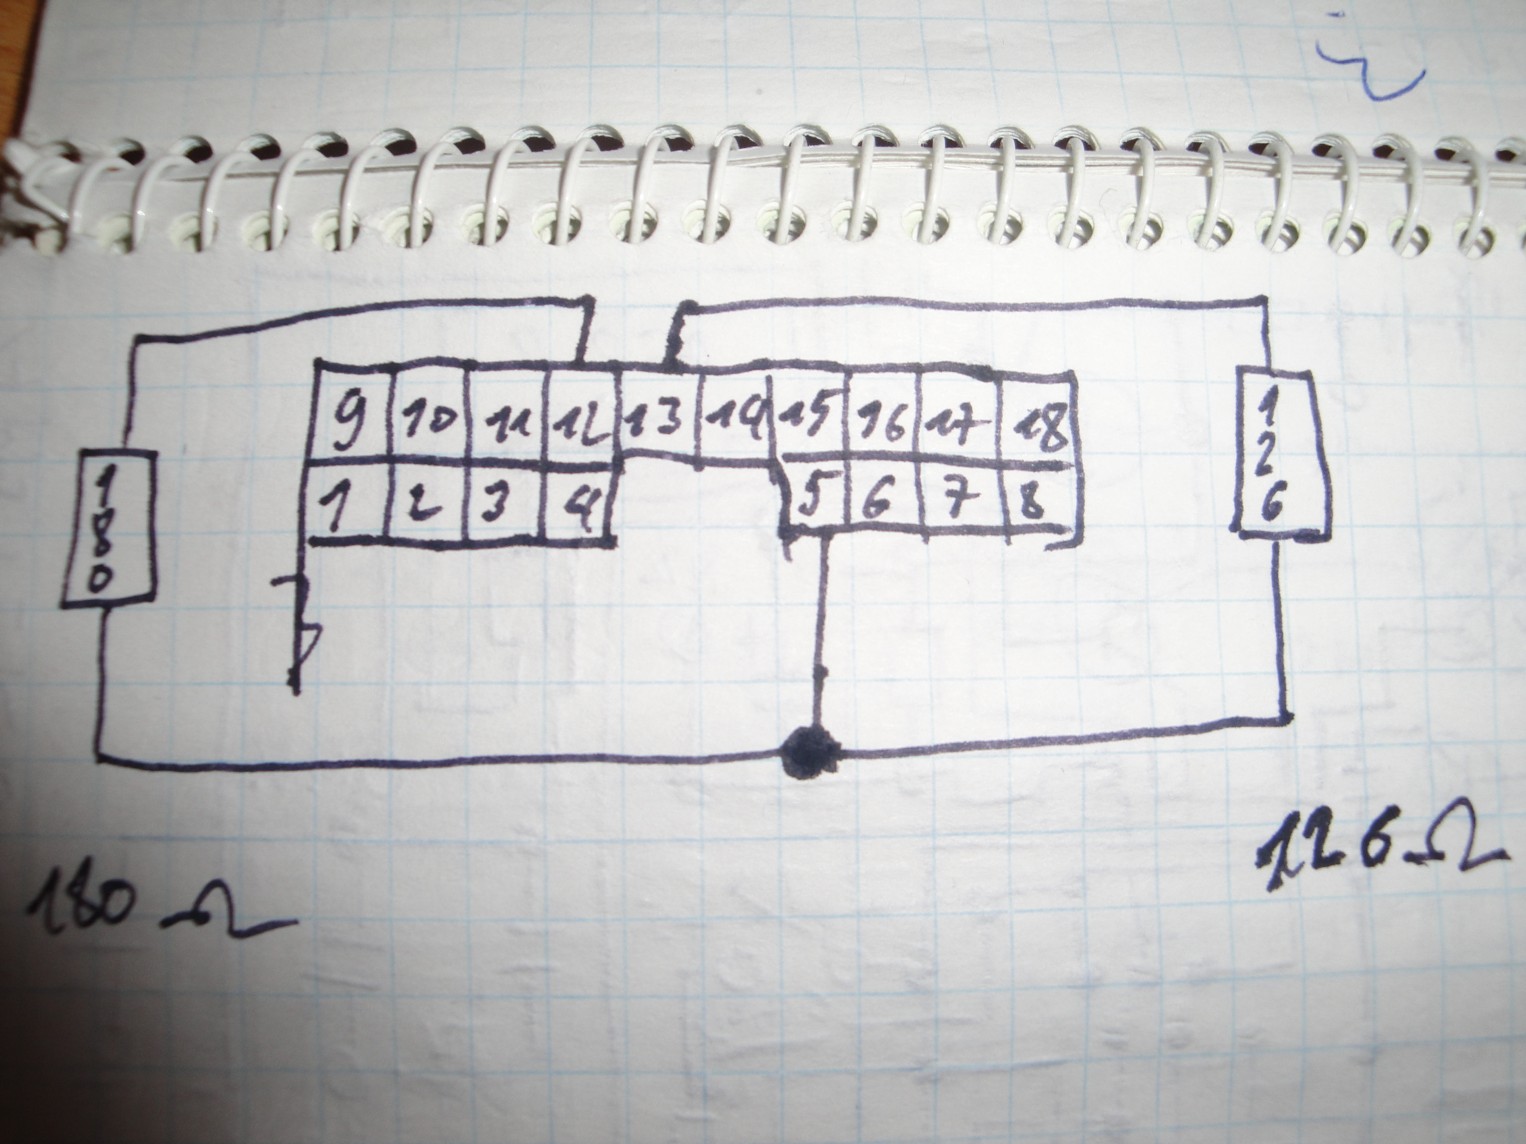 9 10 11 12 13 14 15 16 17 18
1 2 3 4 5 6 7 8
1
8
0
1
2
6
180 Ω
126 Ω